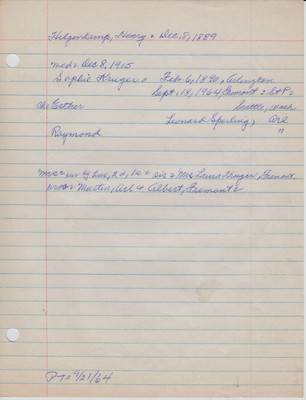 Helgenkamp, Henry • Dec. 8, 1889
med • Dec 8, 1915
Sophie Kruger • Feb. 6, 1890, Arlington
Sept. 18, 1964, Fremont
ch • Esther Seattle, Wash
Leonard Sperling, Arl
Raymond "
sur by hus, 2 d, 1 s sis • Mrs Laura Fremont
bros • Martin, Arl • Albert, Fremont
9/21/64